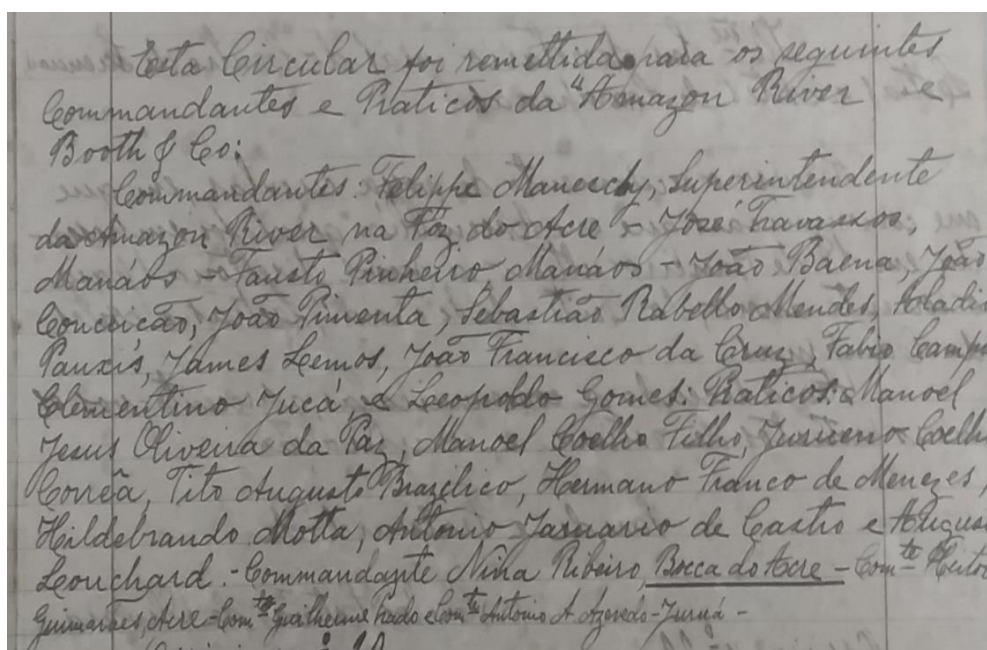 Esta Circular foi remettida para os seguintes
Commandantes e Praticos da "Amazon River e
Booth & Co:
Commandantes: Felippe Maneschy, Superintendente
da Amazon River na Foz do Acre - José Travassos,
Manáos - Fausto Pinheiro, Manáos - João Baena, João
Conceição, João Pimenta, Sebastião Rabello Mendes,
Pauxis, James Lemos, João Francisco da Cruz, Fabio Camp
Clementino Jucá, e Leopoldo Gomes: Praticos: Manoel
Jesus Oliveira da Paz, Manoel Coelho Filho, Coelh
Corrêa, Tito Augusto Brazilico, Hermano Franco de Menezes,
Hildebrando Motta, Antonio Januario de Castro e Augus
Leonchard. - Commandante Nina Ribeiro, Bocca do Acre - Com.te Heitor
Guimarães, Acre - Com.te Guilherme Prado e Com.te Antonio A. Azevedo - Juruá -